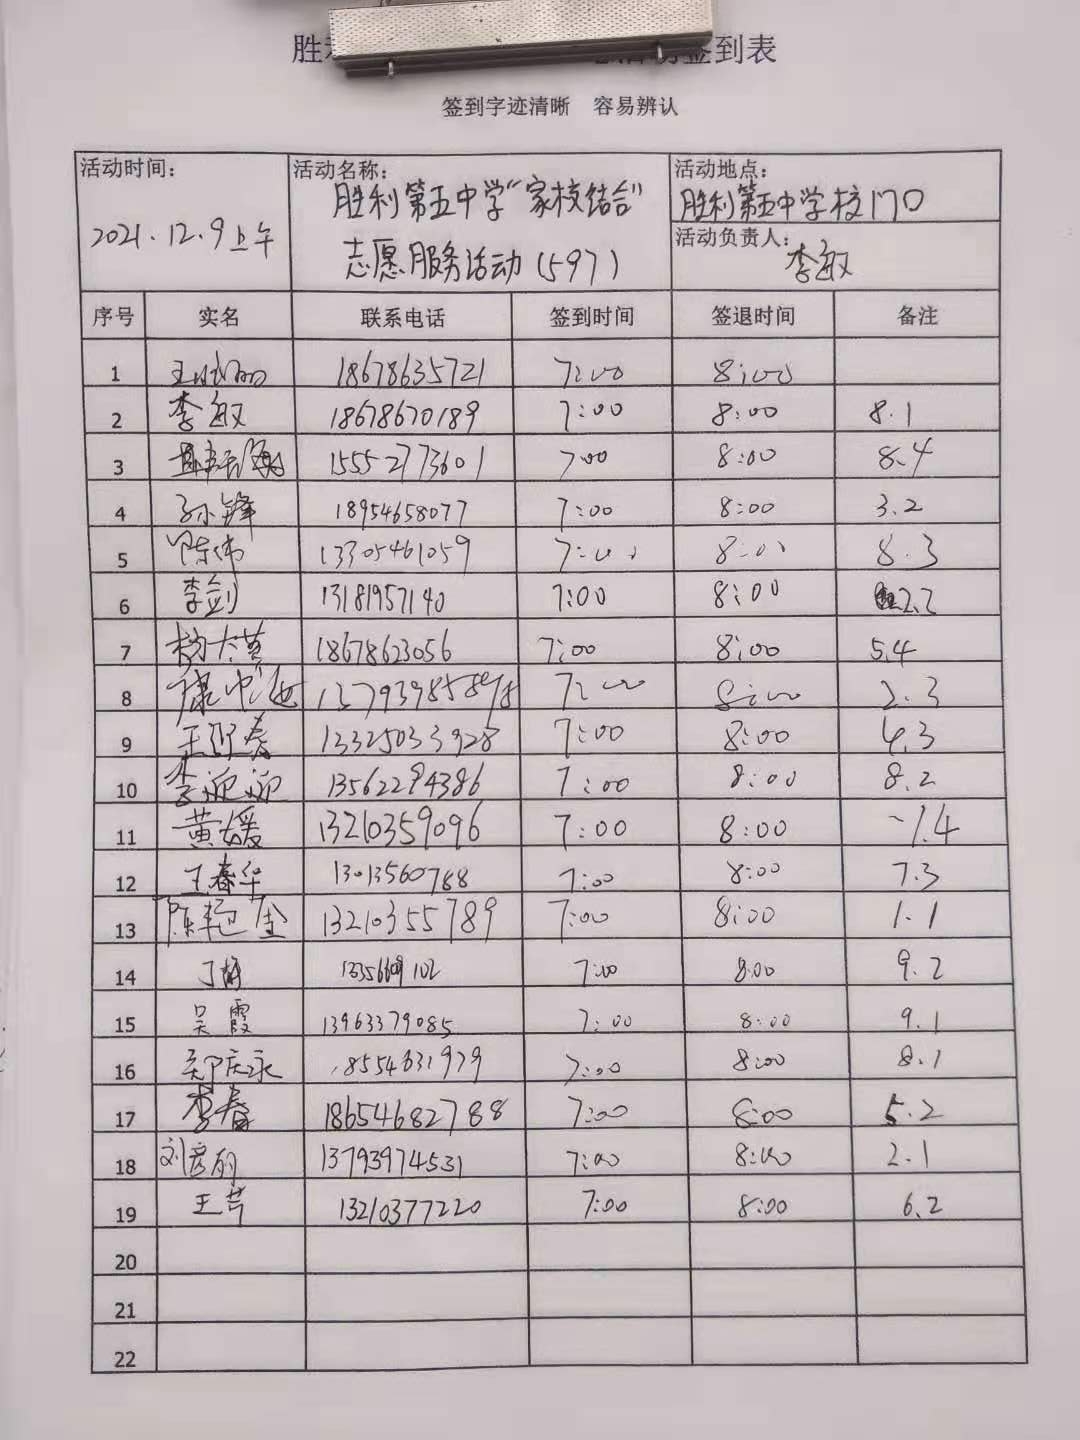 签到表
签到字迹清晰 容易辨认
活动时间: 活动名称: 活动地点:
2021.12.9上午 胜利第五中学"家校结合" 胜利第五中学校门口
志愿服务活动(597) 活动负责人: 李敏
序号 实名 联系电话 签到时间 签退时间 备注
1 18678635721 7:00 8:00
2 李敏 18678670189 7:00 8:00 8.1
3 15552773601 7:00 8:00 8.4
4 孙锋 18954658077 7:00 8:00 3.2
5 陈伟 13305461059 7:00 8:00 8.3
6 李剑 13181957140 7:00 8:00 2.2
7 18678623056 7:00 8:00 5.4
8 7:00 8:00 2.3
9 王迎春 13325033928 7:00 8:00 4.3
10 李迎迎 13562294386 7:00 8:00 8.2
11 黄媛 13210359096 7:00 8:00 1.4
12 王春华 13013560788 7:00 8:00 7.3
13 13210355789 7:00 8:00 1.1
14 7:00 8:00 9.2
15 吴霞 13963379085 7:00 8:00 9.1
16 郑庆永 18554631979 7:00 8:00 8.1
17 李春 18654682788 7:00 8:00 5.2
18 刘彦丽 13793974531 7:00 8:00 2.1
19 王芹 13210377220 7:00 8:00 6.2
20
21
22